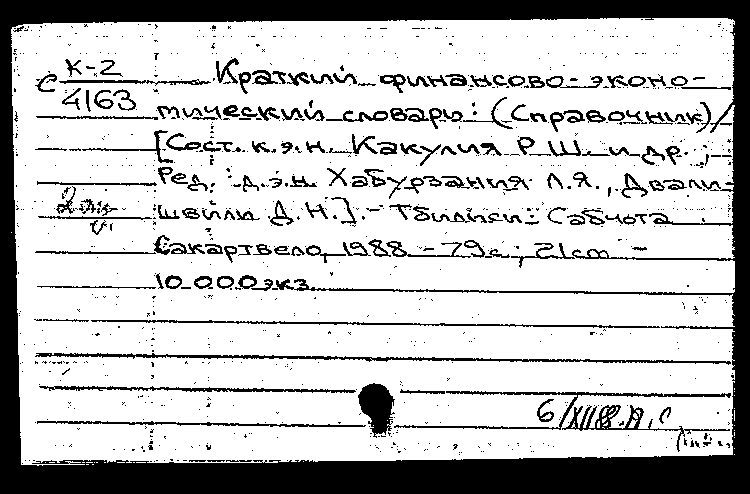 К-2
С 4163
Краткий финансово-эконо-
мический словарь: (Справочник)/
[Сост. к.э.н. Какулия Р.Ш. и др.;
Ред.: д.э.н. Хабурзания Л.Я., Двали-
швили Д.Н.].- Тбилиси: Сабчота
Сакартвело, 1988 - 79с.; 21cm -
10 000 экз.
6/XII 88.